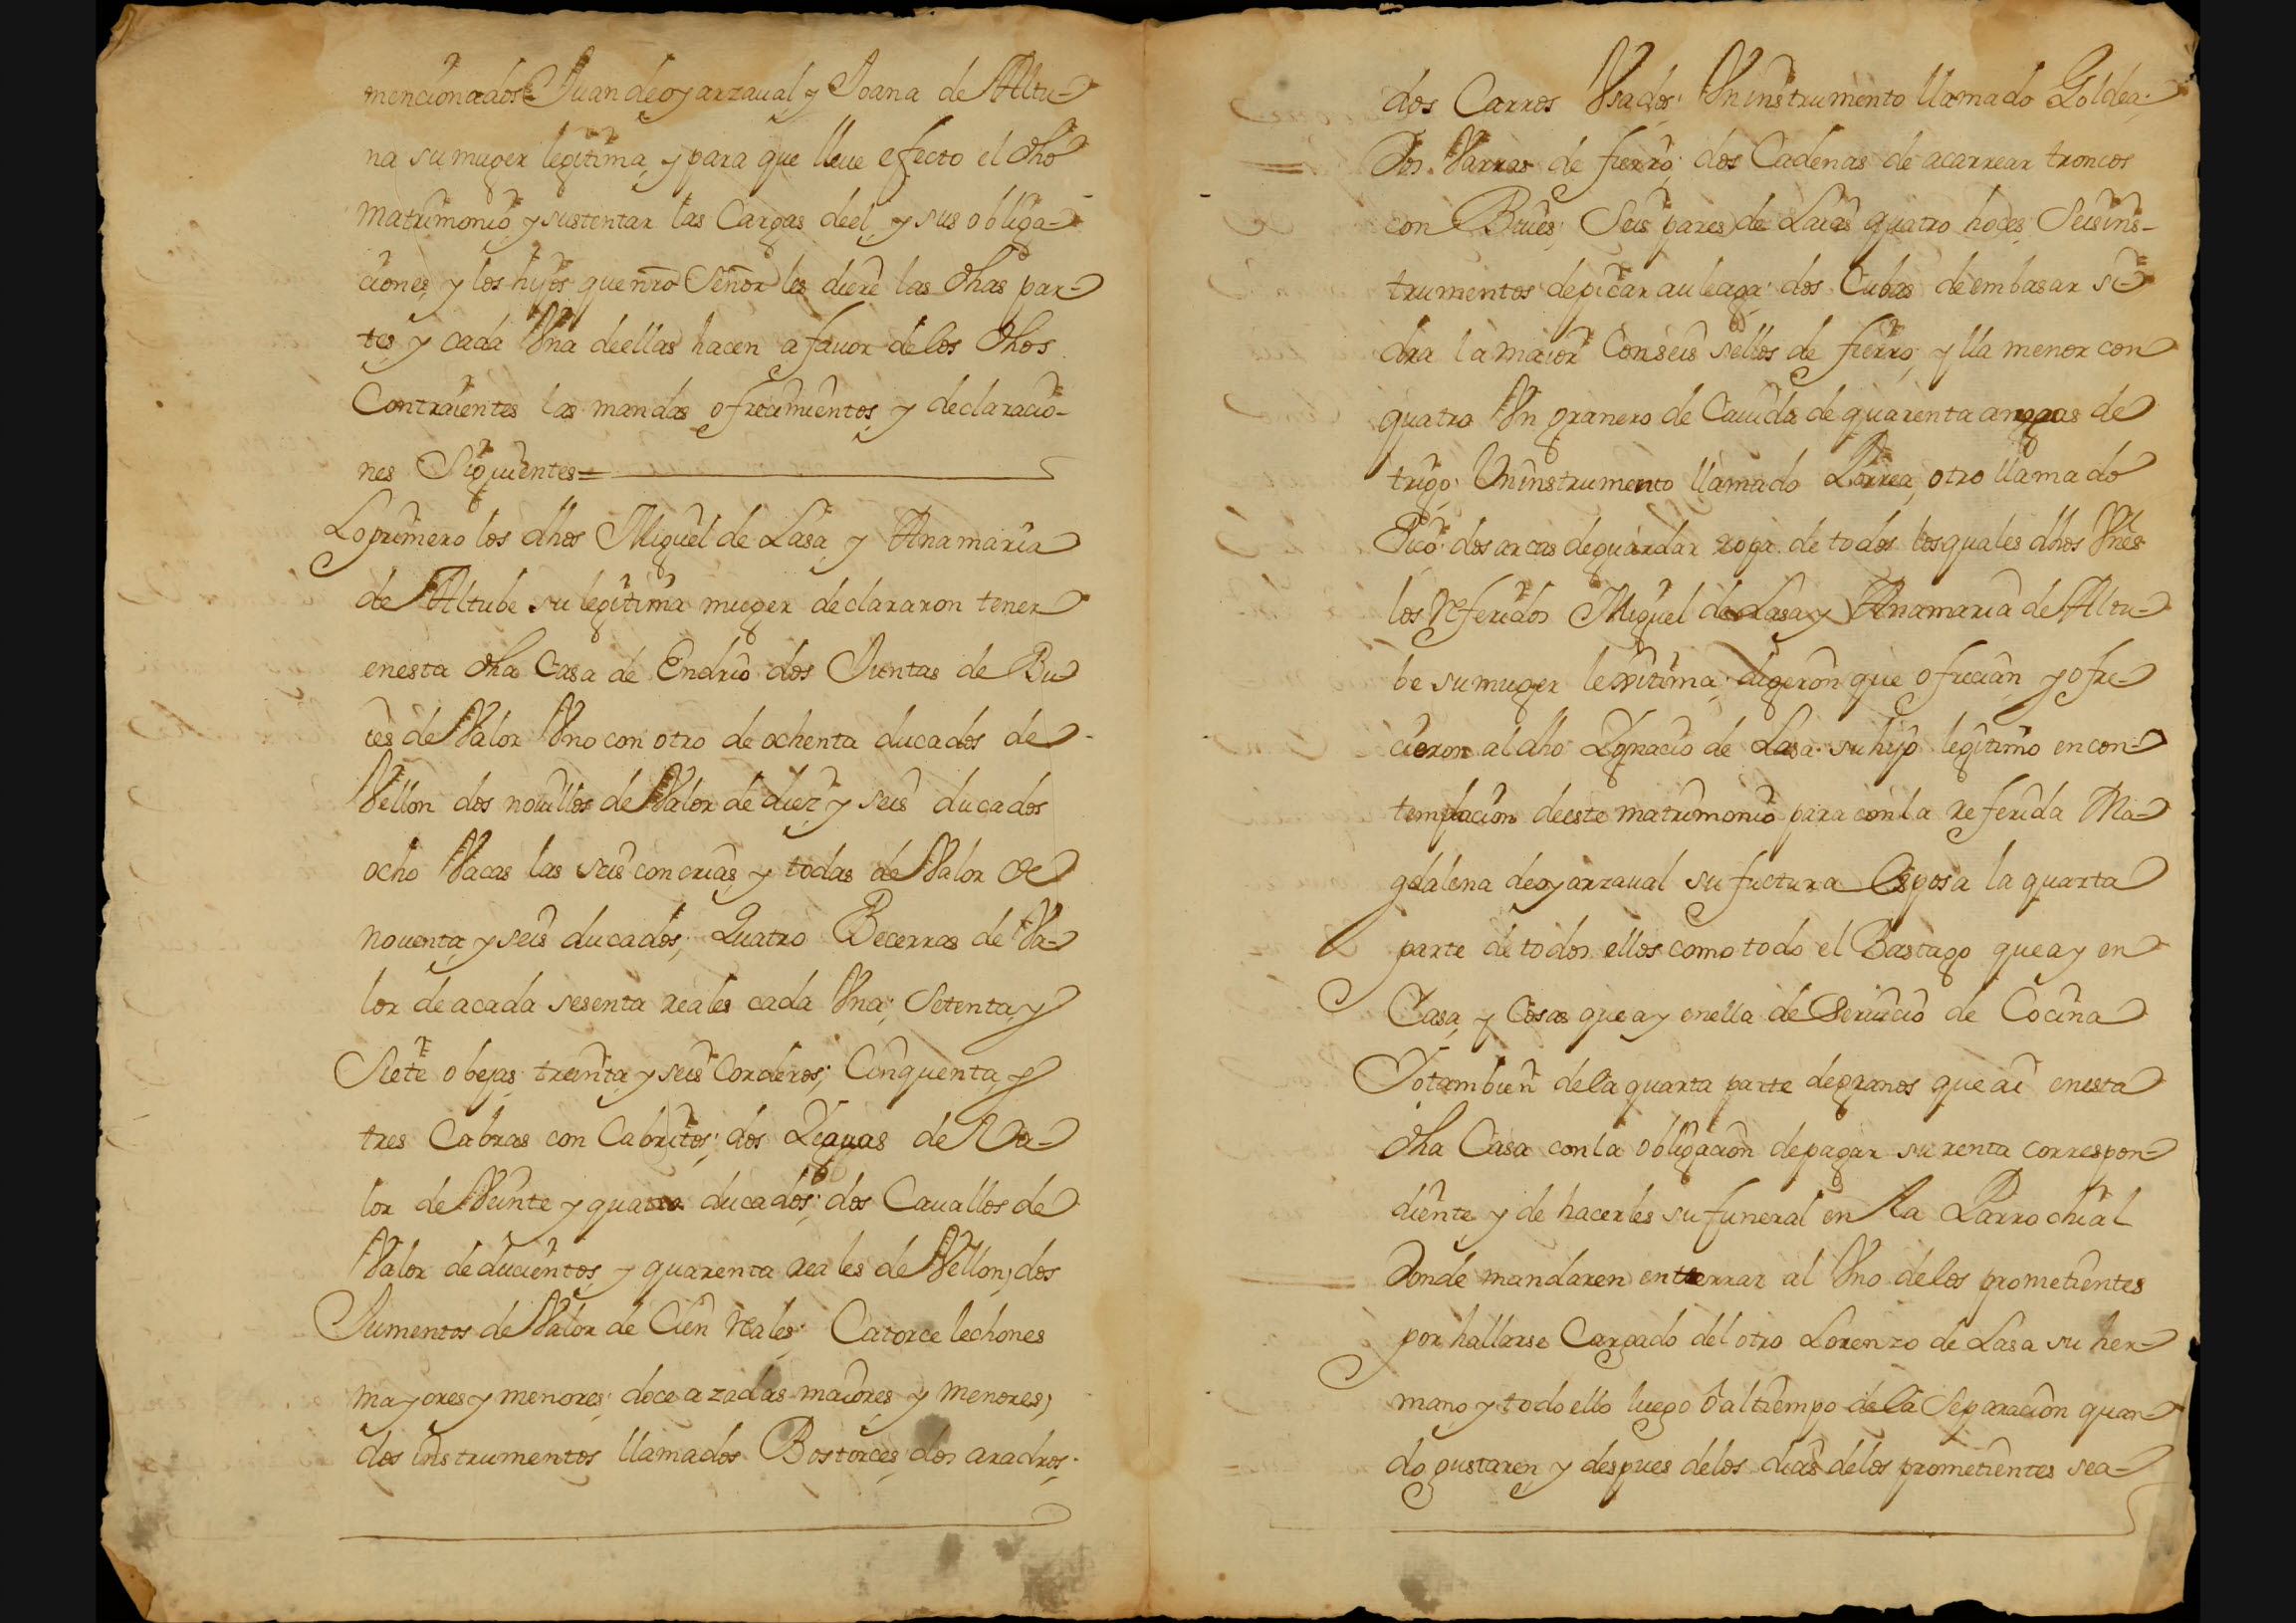 mencionados Juan de oyarzaual y Joana de Altu-
na su muger legitima, y para que lleue efecto el dho
Matrimonio, y sustentar las Cargas deel, y sus obliga-
ciones, y los hijos que nro Señor les diere las dhas par-
tes, y cada Vna deellas hacen a fauor delos dhos
Contraientes las mandas, ofrecimientos, y declaracio-
nes Siguientes=
Lo primero los dhos Miguel de Lasa y Anamaria
de Altube su legitima muger declararon tener
enesta dha Casa de Endrio dos Juntas de Bu-
ies de Valor Vno con otro de ochenta ducados de
Vellon dos nouillos de Valor de diez y seis ducados
ocho Vacas las seis con crias, y todas de Valor de
nouenta, y seis ducados; Quatro Becerras de Va-
lor de acada sesenta reales cada Vna; Setenta, y
Siete obejas, treinta, y seis Corderos; Cinquenta, y
tres Cabras con Cabritos; dos Yeguas de Va-
lor de Veinte y quatro ducados; dos Cauallos de
Valor de ducientos, y quarenta reales de Vellon; dos
Jumentos de Valor de Cien reales; Catorce lechones
mayores y menores; doce azadas maiores, y menores;
dos instrumentos llamados Bostorces; dos aradros;
dos Carros Vsados; Vn instrumento llamado Goldea;
Dos Varras de fierro; dos Cadenas de acarrear troncos
con Bues; Seis pares de Laias quatro hoces; Seis ins-
trumentos de picar auleaga; dos Cubas de embasar si-
dra la maior Con seis sellos de fierro; y lla menor con
quatro Vn granero de Cauida de quarenta anegas de
trigo; Vn instrumento llamado Larrea, otro llamado
Pico; dos arcas de guardar ropa. de todos los quales dhos Vnes
los referidos Miguel de Lasa y Anamaria de Altu-
be su muger lexitima; digeron que ofrecian, y ofre-
cieron al dho Ygnacio de Lasa su hijo legitimo en con-
templacion deeste matrimonio para con la referida Ma-
gdalena de oyarzaual su fuctura Esposa la quarta
parte de todos ellos como todo el Bastago que ay en
Casa, y Cosas que ay enella de Seruicio de Cocina
Yo tambien dela quarta parte de granos que ai enesta
dha Casa con la obligacion de pagar su renta correspon-
diente, y de hacerles su funeral en la Parrochial
Donde mandaren enterrar al Vno delos prometientes
por hallarse Cargado del otro Lorenzo de Lasa su her-
mano, y todo ello luego o al tiempo dela Separacion quan-
do gustaren, y despues delos dias delos prometientes sea-